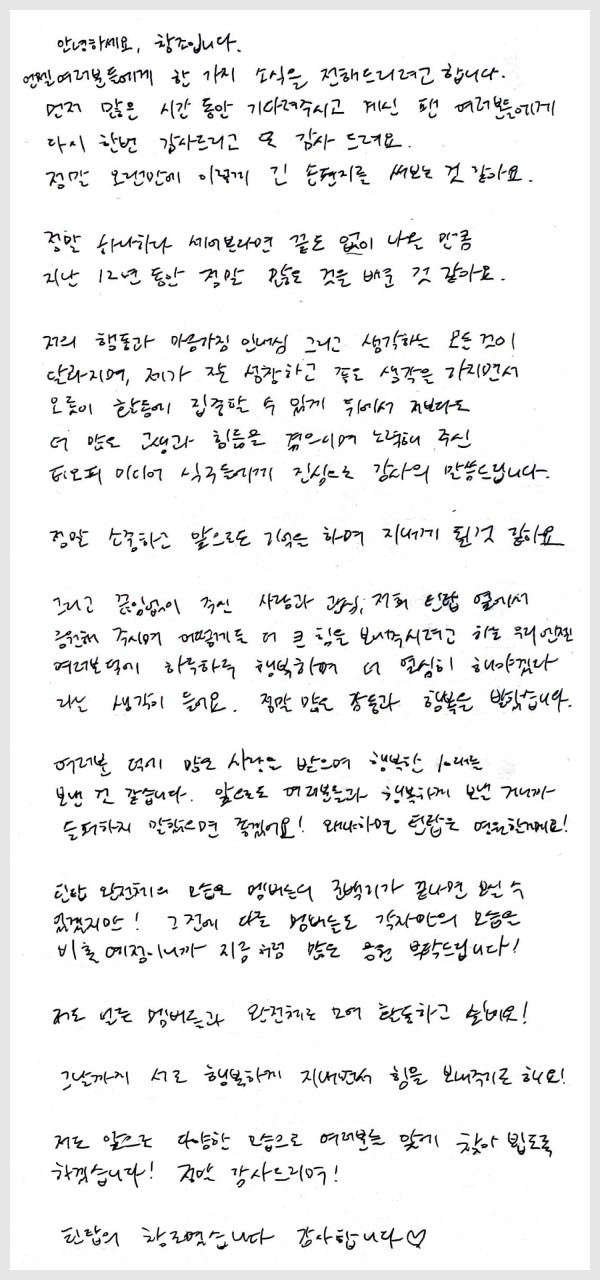 안녕하세요, 창조입니다.
엔젤여러분들에게 한 가지 소식을 전해드리려고 합니다.
먼저 많은 시간 동안 기다려주시고 계신 팬 여러분들에게
다시 한번 감사드리고 또 감사 드려요.
정말 오랜만에 이렇게 긴 손편지를 써보는 것 같아요.
정말 하나하나 세어본다면 끝도 없이 나올 만큼
지난 12년 동안 정말 많은 것을 배운 것 같아요.
저의 행동과 마음가짐 인내심 그리고 생각하는 모든 것이
달라지며, 제가 잘 성장하고 좋은 생각을 가지면서
오롯이 활동에 집중할 수 있게 뒤에서 저보다도
더 많은 고생과 힘듦을 겪으시며 노력해 주신
티오피 미디어 식구들에게 진심으로 감사의 말씀드립니다.
정말 소중하고 앞으로도 기억은 하며 지내게 될것 같아요
그리고 끊임없이 주신 사랑과 관심, 저희 틴탑 옆에서
응원해 주시며 어떻게든 더 큰 힘을 보내주시려고 하는 우리 엔젤
여러분 덕에 하루하루 행복하며 더 열심히 해야겠다
라는 생각이 들어요. 정말 많은 감동과 행복을 받았습니다.
여러분 덕에 많은 사랑을 받으며 행복한 10대를
보낸 것 같습니다. 앞으로도 여러분들과 행복하게 보낼 거니까
슬퍼하지 말았으면 좋겠어요! 왜냐하면 틴탑은 영원한까요!
틴탑 완전체의 모습은 멤버들의 공백기가 끝나면 보실 수
있겠지만! 그 전에 다른 멤버들도 각자만의 모습을
비출 예정이니까 지금처럼 많은 응원 부탁드립니다!
저도 얼른 멤버들과 완전체로 모여 활동하고 싶네요!
그날까지 서로 행복하게 지내면서 힘을 보내주기로 해요!
저도 앞으로 다양한 모습으로 여러분들 앞에 찾아 뵙도록
하겠습니다! 정말 감사드리며!
틴탑의 창조였습니다 감사합니다♡